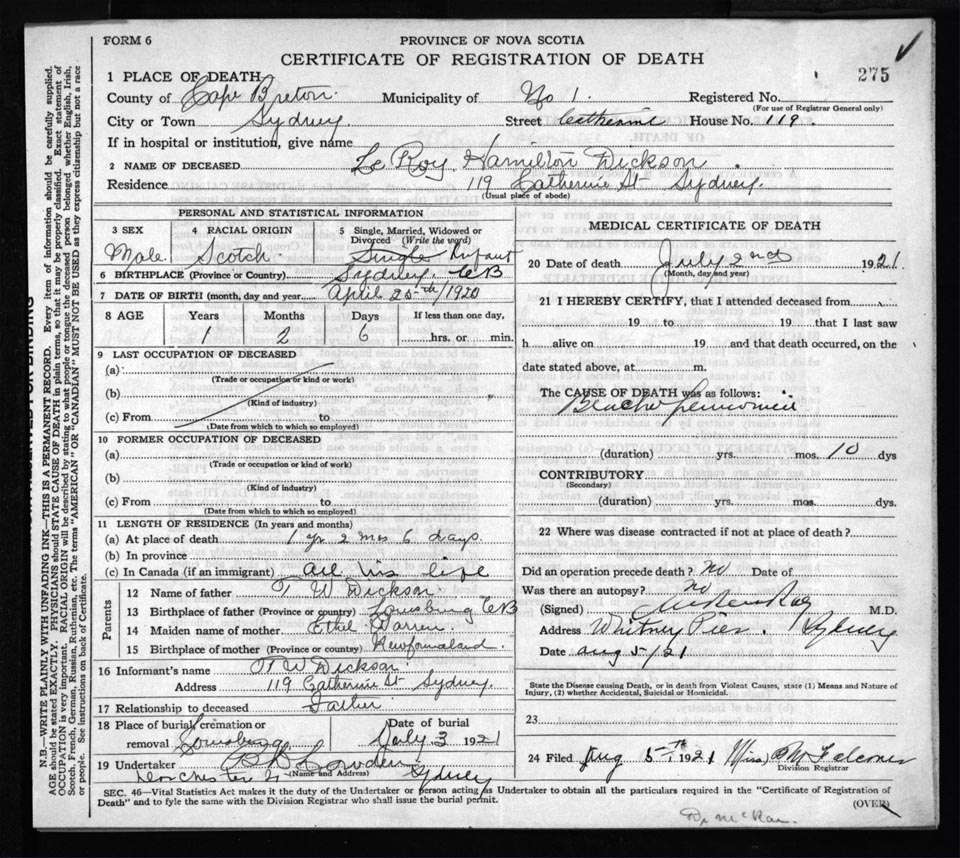 FORM 6
PROVINCE OF NOVA SCOTIA
CERTIFICATE OF REGISTRATION OF DEATH
275
1 PLACE OF DEATH
County of Cape Breton Municipality of No 1. Registered No.
(For use of Registrar General only)
City or Town Sydney. Street Catherine House No. 119.
If in hospital or institution, give name
2 NAME OF DECEASED Le Roy Hamilton Dickson
Residence 119 Catherine St Sydney.
(Usual place of abode)
PERSONAL AND STATISTICAL INFORMATION
3 SEX 4 RACIAL ORIGIN 5 Single, Married, Widowed or Divorced (Write the word)
Male. Scotch. Single Infant
6 BIRTHPLACE (Province or Country) Sydney. CB
7 DATE OF BIRTH (month, day and year) April 25th/1920
8 AGE Years Months Days If less than one day,
1 2 6 hrs. or min.
9 LAST OCCUPATION OF DECEASED
(a)
(Trade or occupation or kind or work)
(b)
(Kind of industry)
(c) From to
(Date from which to which so employed)
10 FORMER OCCUPATION OF DECEASED
(a)
(Trade or occupation or kind of work)
(b)
(Kind of industry)
(c) From to
(Date from which to which so employed)
11 LENGTH OF RESIDENCE (In years and months)
(a) At place of death 1 yr 2 mos 6 days.
(b) In province
(c) In Canada (if an immigrant) all his life
Parents
12 Name of father T W Dickson.
13 Birthplace of father (Province or country) Louisburg CB
14 Maiden name of mother Ethel Warren.
15 Birthplace of mother (Province or country) Newfoundland.
16 Informant's name T W Dickson.
Address 119 Catherine St Sydney.
17 Relationship to deceased Father
18 Place of burial, cremation or removal Louisburg
Date of burial July 3 1921
19 Undertaker
Dorchester St (Name and Address) Sydney
MEDICAL CERTIFICATE OF DEATH
20 Date of death July 2nd 1921.
(Month, day and year)
21 I HEREBY CERTIFY, that I attended deceased from
19 to 19 that I last saw
h alive on 19 and that death occurred, on the
date stated above, at m.
The CAUSE OF DEATH was as follows:
(duration) yrs. mos. 10 dys
CONTRIBUTORY
(Secondary)
(duration) yrs. mos. dys.
22 Where was disease contracted if not at place of death?
Did an operation precede death? No Date of
Was there an autopsy? no
(Signed) M.D.
Address Whitney Pier. Sydney
Date Aug 5/21
State the Disease causing Death, or in death from Violent Causes, state (1) Means and Nature of Injury, (2) whether Accidental, Suicidal or Homicidal.
23
24 Filed Aug 5th 1921 (Miss)
Division Registrar
SEC. 46—Vital Statistics Act makes it the duty of the Undertaker or person acting as Undertaker to obtain all the particulars required in the "Certificate of Registration of
Death" and to fyle the same with the Division Registrar who shall issue the burial permit.
(OVER)
Dr McRae.
N.B.—WRITE PLAINLY WITH UNFADING INK—THIS IS A PERMANENT RECORD. Every item of information should be carefully supplied.
AGE should be stated EXACTLY. PHYSICIANS should STATE CAUSE OF DEATH in plain terms, so that it may be properly classified. Exact statement of
OCCUPATION is very important. RACIAL ORIGIN will be described by stating to what people or tongue the deceased person belonged whether English, Irish,
Scotch, French, German, Russian, Ruthenian, etc. The terms "AMERICAN" OR "CANADIAN" MUST NOT BE USED as they express citizenship but not a race
or people. See instructions on back of Certificate.